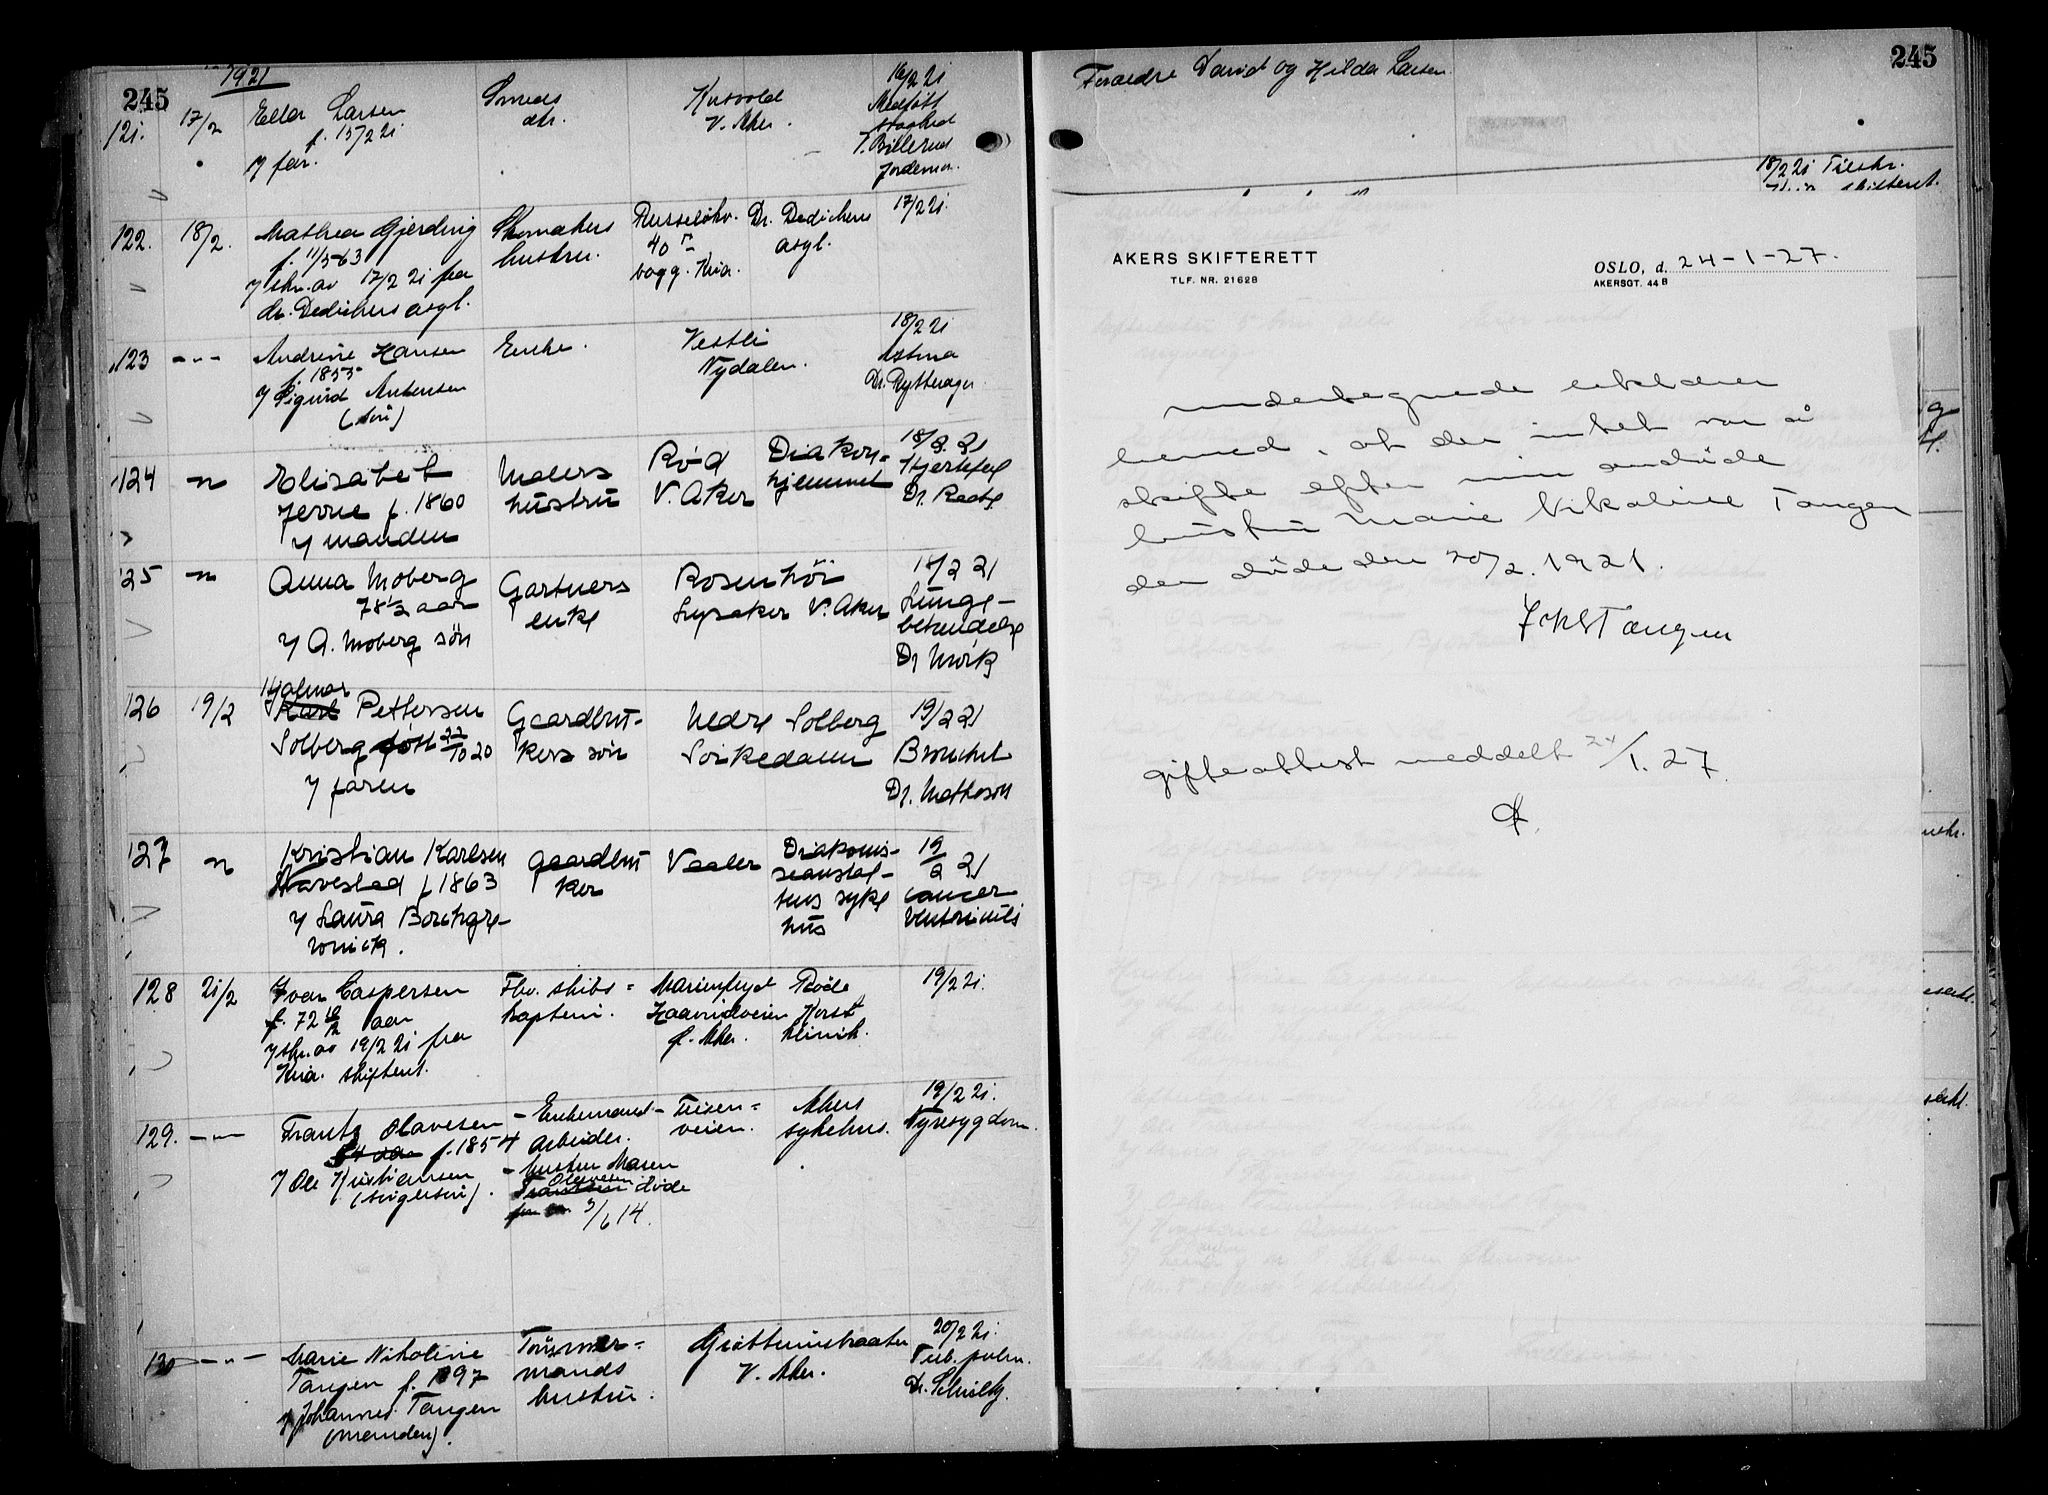 245
1921
121.
17/2
Ella Larsen
f. 15/2 21
v/ far.
Smeds
dtr.
V. Aker.
16/2 21
Medfött
svaghed
J. Billerud
Jordemor.
122.
18/2.
Mathea Gjerding
f. 11/5-63
v/ skr. av 17/2 21 fra
dr. Dedichens asyl.
Skomakers
hustru.
Russeløkv.
40
bagg. Kria.
Dr. Dedichens
asyl.
17/2 21.
123
-"-
Andrine Hansen
f. 1853
v/ Sigurd
(sön)
Enke.
Vestli
Nydalen.
18/2 21
Astma
Dr. Rytterager.
124
"
Elisabet
Jerve f. 1860
v/ manden
Malers
hustru
Rö-d
V. Aker
Diakon=
hjemmet
18/2. 21
Hjertefeil
Dr.
125
"
Anna Moberg
78 1/2 aar
v/ A. Moberg sön
Gartners
enke
Rosenhöi
Lysaker V. Aker
18/2 21
Lunge-
betendelse
Dr Mörk
126
19/2
Hjalmar
Karl Pettersen
Solberg född 22/10 20
v/ faren
Gaardbru-
kers sön
Nedre Solberg
Sörkedalen
19/2 21
Bronchit
Dr. Matheson
127
"
Kristian Karlsen
Navestad f 1863
v/ Laura Borchgre-
vinck.
Gaardbru-
ker
Vaaler
Diakonis-
seanstal-
tens syke
hus
19/2 21
cancer
ventriculi
128
21/2
Ivar Caspersen
f. 72 10/12 aar
v/ skr. av 19/2 21 fra
Kria. skifteret.
Fhv. skibs=
kaptein.
Marienlyst
Haavindveien
Ø. Aker.
Røde
Kors
klinik.
19/2 21.
129.
-"-
Frantz Olavesen
f. 1854
v/ Ole Kristiansen
(svigersön).
- Enkemand -
Arbeider.
- hustru Maren
Olavesen
Frantzen döde
3/6 14.
Teisen=
veien.
Akers
sykehus.
19/2 21.
Nyresygdom.
130
-"-
Marie Nikoline
Tangen f. 1897
v/ Johannes Tangen
(manden).
Tömmer=
mands
hustru.
Grötteruinbraaten
V. Aker.
20/2 21.
Tub. pulm.
245
Foraeldre David og Hilda Larsen
18/2 21 Tilskr.
skifteret.
AKERS SKIFTERETT
TLF. NR. 21628
OSLO, d. 24-1-27.
AKERSGT. 44 B
undertegnede erklærer
herved, at der intet var å
skifte efter min avdöde
hustru Marie Nikoline Tangen
der döde den 20/2. 1921.
Tangen
gifteattest meddelt 24/1. 27.